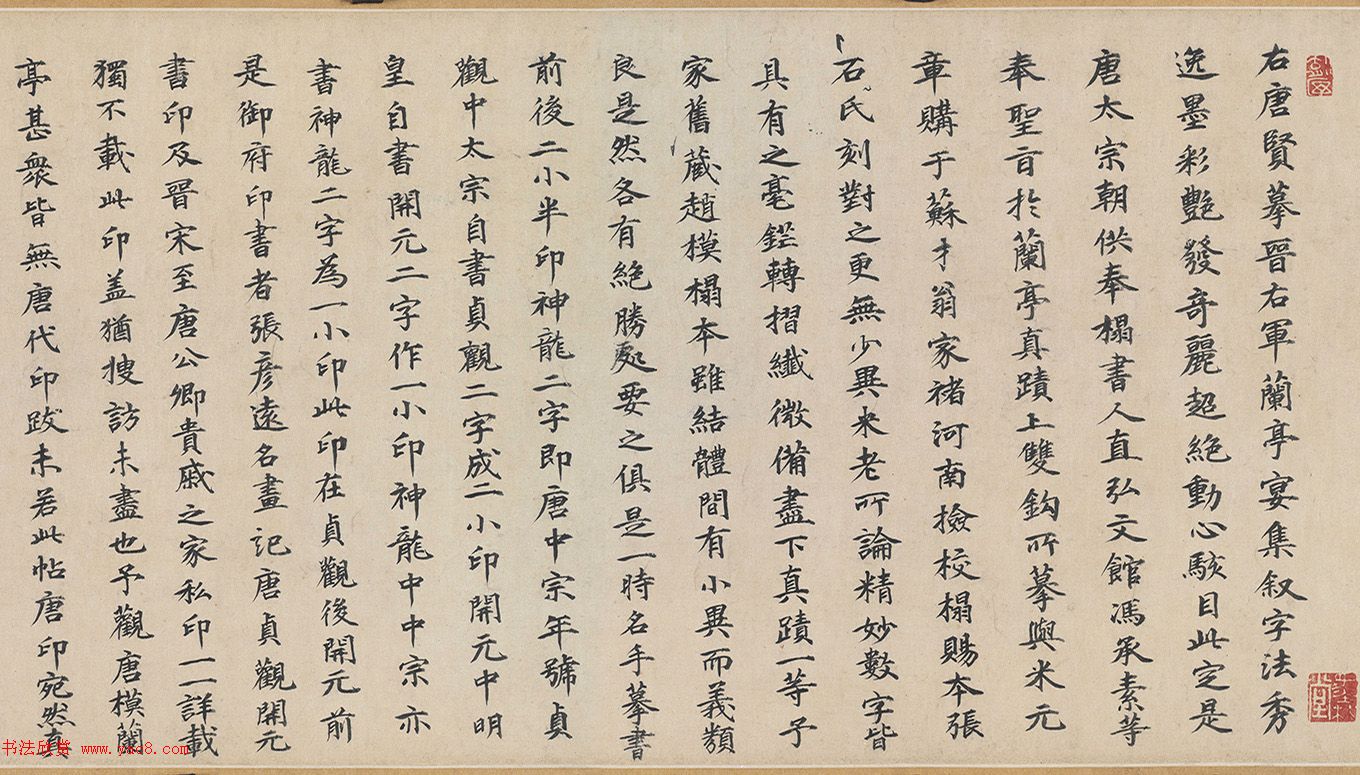 右唐賢摹晉右軍蘭亭宴集叙字法秀
逸墨彩艷發奇麗超絕動心駭目此定是
唐太宗朝供奉榻書人直弘文館馮承素等
奉聖旨於蘭亭真蹟上雙鈎所摹與米元
章購于蘇才翁家褚河南撿校榻賜本張
石氏刻對之更無少異米老所論精妙數字皆
具有之毫鋩轉摺纖微備盡下真蹟一等予
家舊藏趙模榻本雖結體間有小異而義類
良是然各有絕勝處要之俱是一時名手摹書
前後二小半印神龍二字即唐中宗年號貞
觀中太宗自書貞觀二字成二小印開元中明
皇自書開元二字作一小印神龍中中宗亦
書神龍二字為一小印此印在貞觀後開元前
是御府印書者張彥遠名畫記唐貞觀開元
書印及晉宋至唐公卿貴戚之家私印一一詳載
獨不載此印盖猶搜訪未盡也予觀唐模蘭
亭甚衆皆無唐代印跋未若此帖唐印宛然真
书法欣赏 www.yac8.com